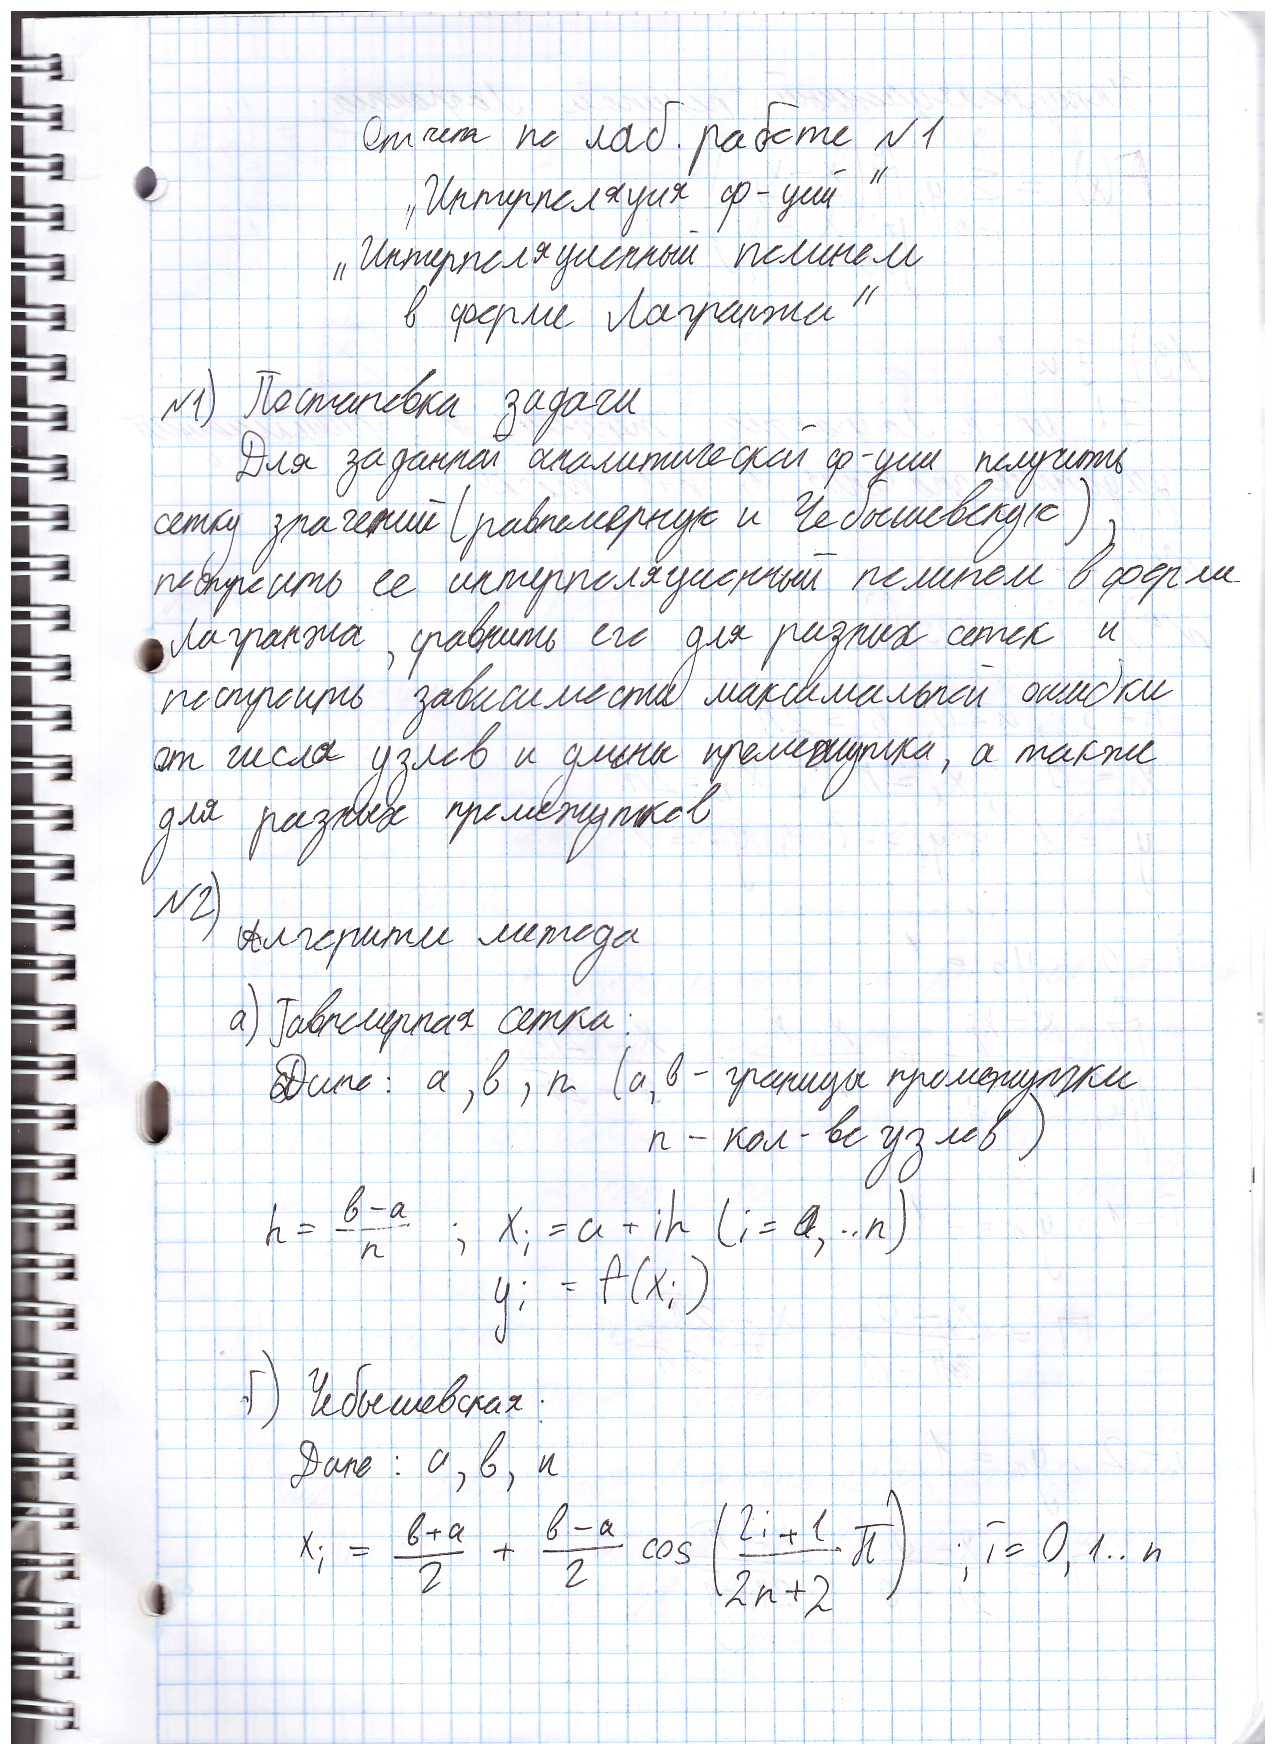 Отчет по лаб. работе №1
„Интерполяция ф-ций"
„Интерполяционный полином
в форме Лагранжа"
№1) Постановка задачи
Для заданной аналитической ф-ции получить
сетку значений (равномерную и Чебышевскую),
построить ее интерполяционный полином в форме
Лагранжа, сравнить его для разных сеток и
построить зависимости максимальной ошибки
от числа узлов и длины промежутка, а также
для разных промежутков
№2)
Алгоритм метода
а) Равномерная сетка:
Дано: a, b, n (a, b - границы промежутка
n - кол-во узлов)
h = \frac{b-a}{n} ; x_i = a + ih (i = 0, ..n)
y_i = f(x_i)
б) Чебышевская:
Дано: a, b, n
x_i = \frac{b+a}{2} + \frac{b-a}{2} cos(\frac{2i+1}{2n+2} π) ; i = 0, 1..n